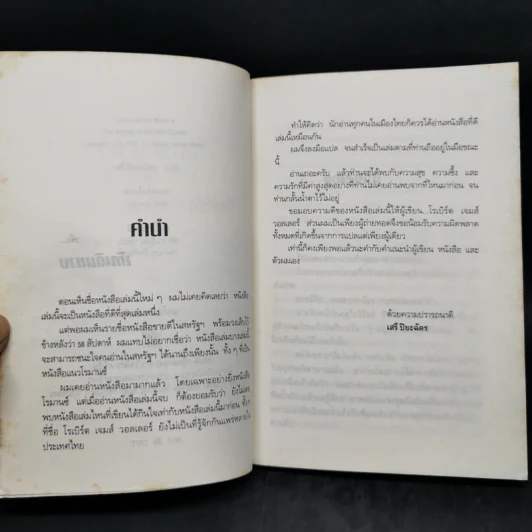 คำนำ
ตอนเห็นชื่อหนังสือเล่มนี้ใหม่ ๆ ผมไม่เคยคิดเลยว่า หนังสือ
เล่มนี้จะเป็นหนังสือที่ดีที่สุดเล่มหนึ่ง
แต่พอผมเห็นรายชื่อหนังสือขายดีในสหรัฐฯ พร้อมวงเล็บไว้
ข้างหลังว่า 58 สัปดาห์ ผมแทบไม่อยากเชื่อว่า หนังสือเล่มบางเล่มนี้
จะสามารถชนะใจคนอ่านในสหรัฐฯ ได้นานถึงเพียงนั้น ทั้ง ๆ ที่เป็น
หนังสือแนวโรมานซ์
ผมเคยอ่านหนังสือมามากแล้ว โดยเฉพาะอย่างยิ่งหนังสือ
โรมานซ์ แต่เมื่ออ่านหนังสือเล่มนี้จบ ก็ต้องยอมรับว่า ยังไม่เคย
พบหนังสือเล่มไหนที่เขียนได้กินใจเท่ากับหนังสือเล่มนี้มาก่อน
ที่ชื่อ โรเบิร์ต เจมส์ วอลเลอร์ ยังไม่เป็นที่รู้จักกันแพร่หลายใน
ประเทศไทย
ทำให้คิดว่า นักอ่านทุกคนในเมืองไทยก็ควรได้อ่านหนังสือที่ดี
เล่มนี้เหมือนกัน
ผมจึงลงมือแปล จนสำเร็จเป็นเล่มตามที่ท่านถืออยู่ในมือขณะ
นี้
อ่านเถอะครับ แล้วท่านจะได้พบกับความสุข ความซึ้ง และ
ความรักที่มีค่าสูงสุดอย่างที่ท่านไม่เคยอ่านพบจากที่ไหนมาก่อน จน
ท่านกลั้นน้ำตาไว้ไม่อยู่
ขอมอบความดีของหนังสือเล่มนี้ให้ผู้เขียน โรเบิร์ต เจมส์
วอลเลอร์ ส่วนผมเป็นเพียงผู้ถ่ายทอดจึงขอน้อมรับความผิดพลาด
ทั้งหมดที่เกิดขึ้นจากการแปลแต่เพียงผู้เดียว
เท่านี้ก็คงเพียงพอแล้วนะคำกับคำแนะนำผู้เขียน หนังสือ และ
ตัวผมเอง
ด้วยความปรารถนาดี
เสรี ปิยะฉัตร